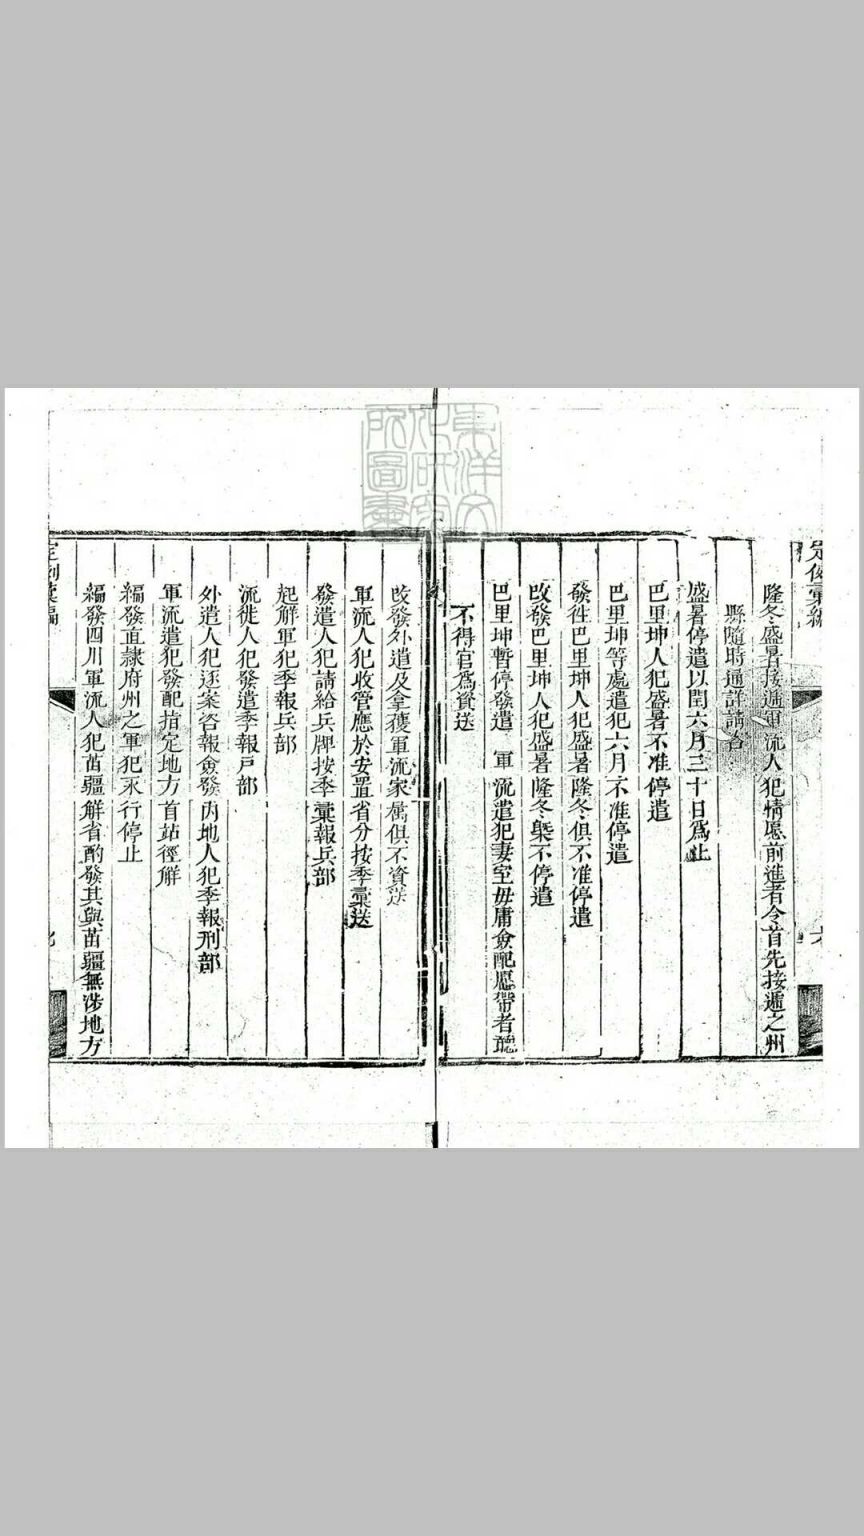 隆冬盛暑接遞軍流人犯情愿前進者令首先接遞之州
縣隨時通詳請咨
盛暑停遣以閏六月三十日爲止
巴里坤人犯盛暑不准停遣
巴里坤等處遣犯六月不准停遣
發徃巴里坤人犯盛暑隆冬俱不准停遣
改發巴里坤人犯盛暑隆冬槩不停遣
巴里坤暫停發遣 軍流遣犯妻室毋庸僉配愿帶者聽
不得官爲資送
改發外遣及拿獲軍流家属俱不資送
軍流人犯收管應於安置省分按季彙送
發遣人犯請給兵牌按季彙報兵部
起解軍犯季報兵部
流徙人犯發遣季報戸部
外遣人犯逐案咨報僉發内地人犯季報刑部
軍流遣犯發配指定地方首站徑解
編發直隷府州之軍犯永行停止
編發四川軍流人犯苗疆解省酌發其與苗疆無涉地方
定例彙編
東洋文化研究所圖書